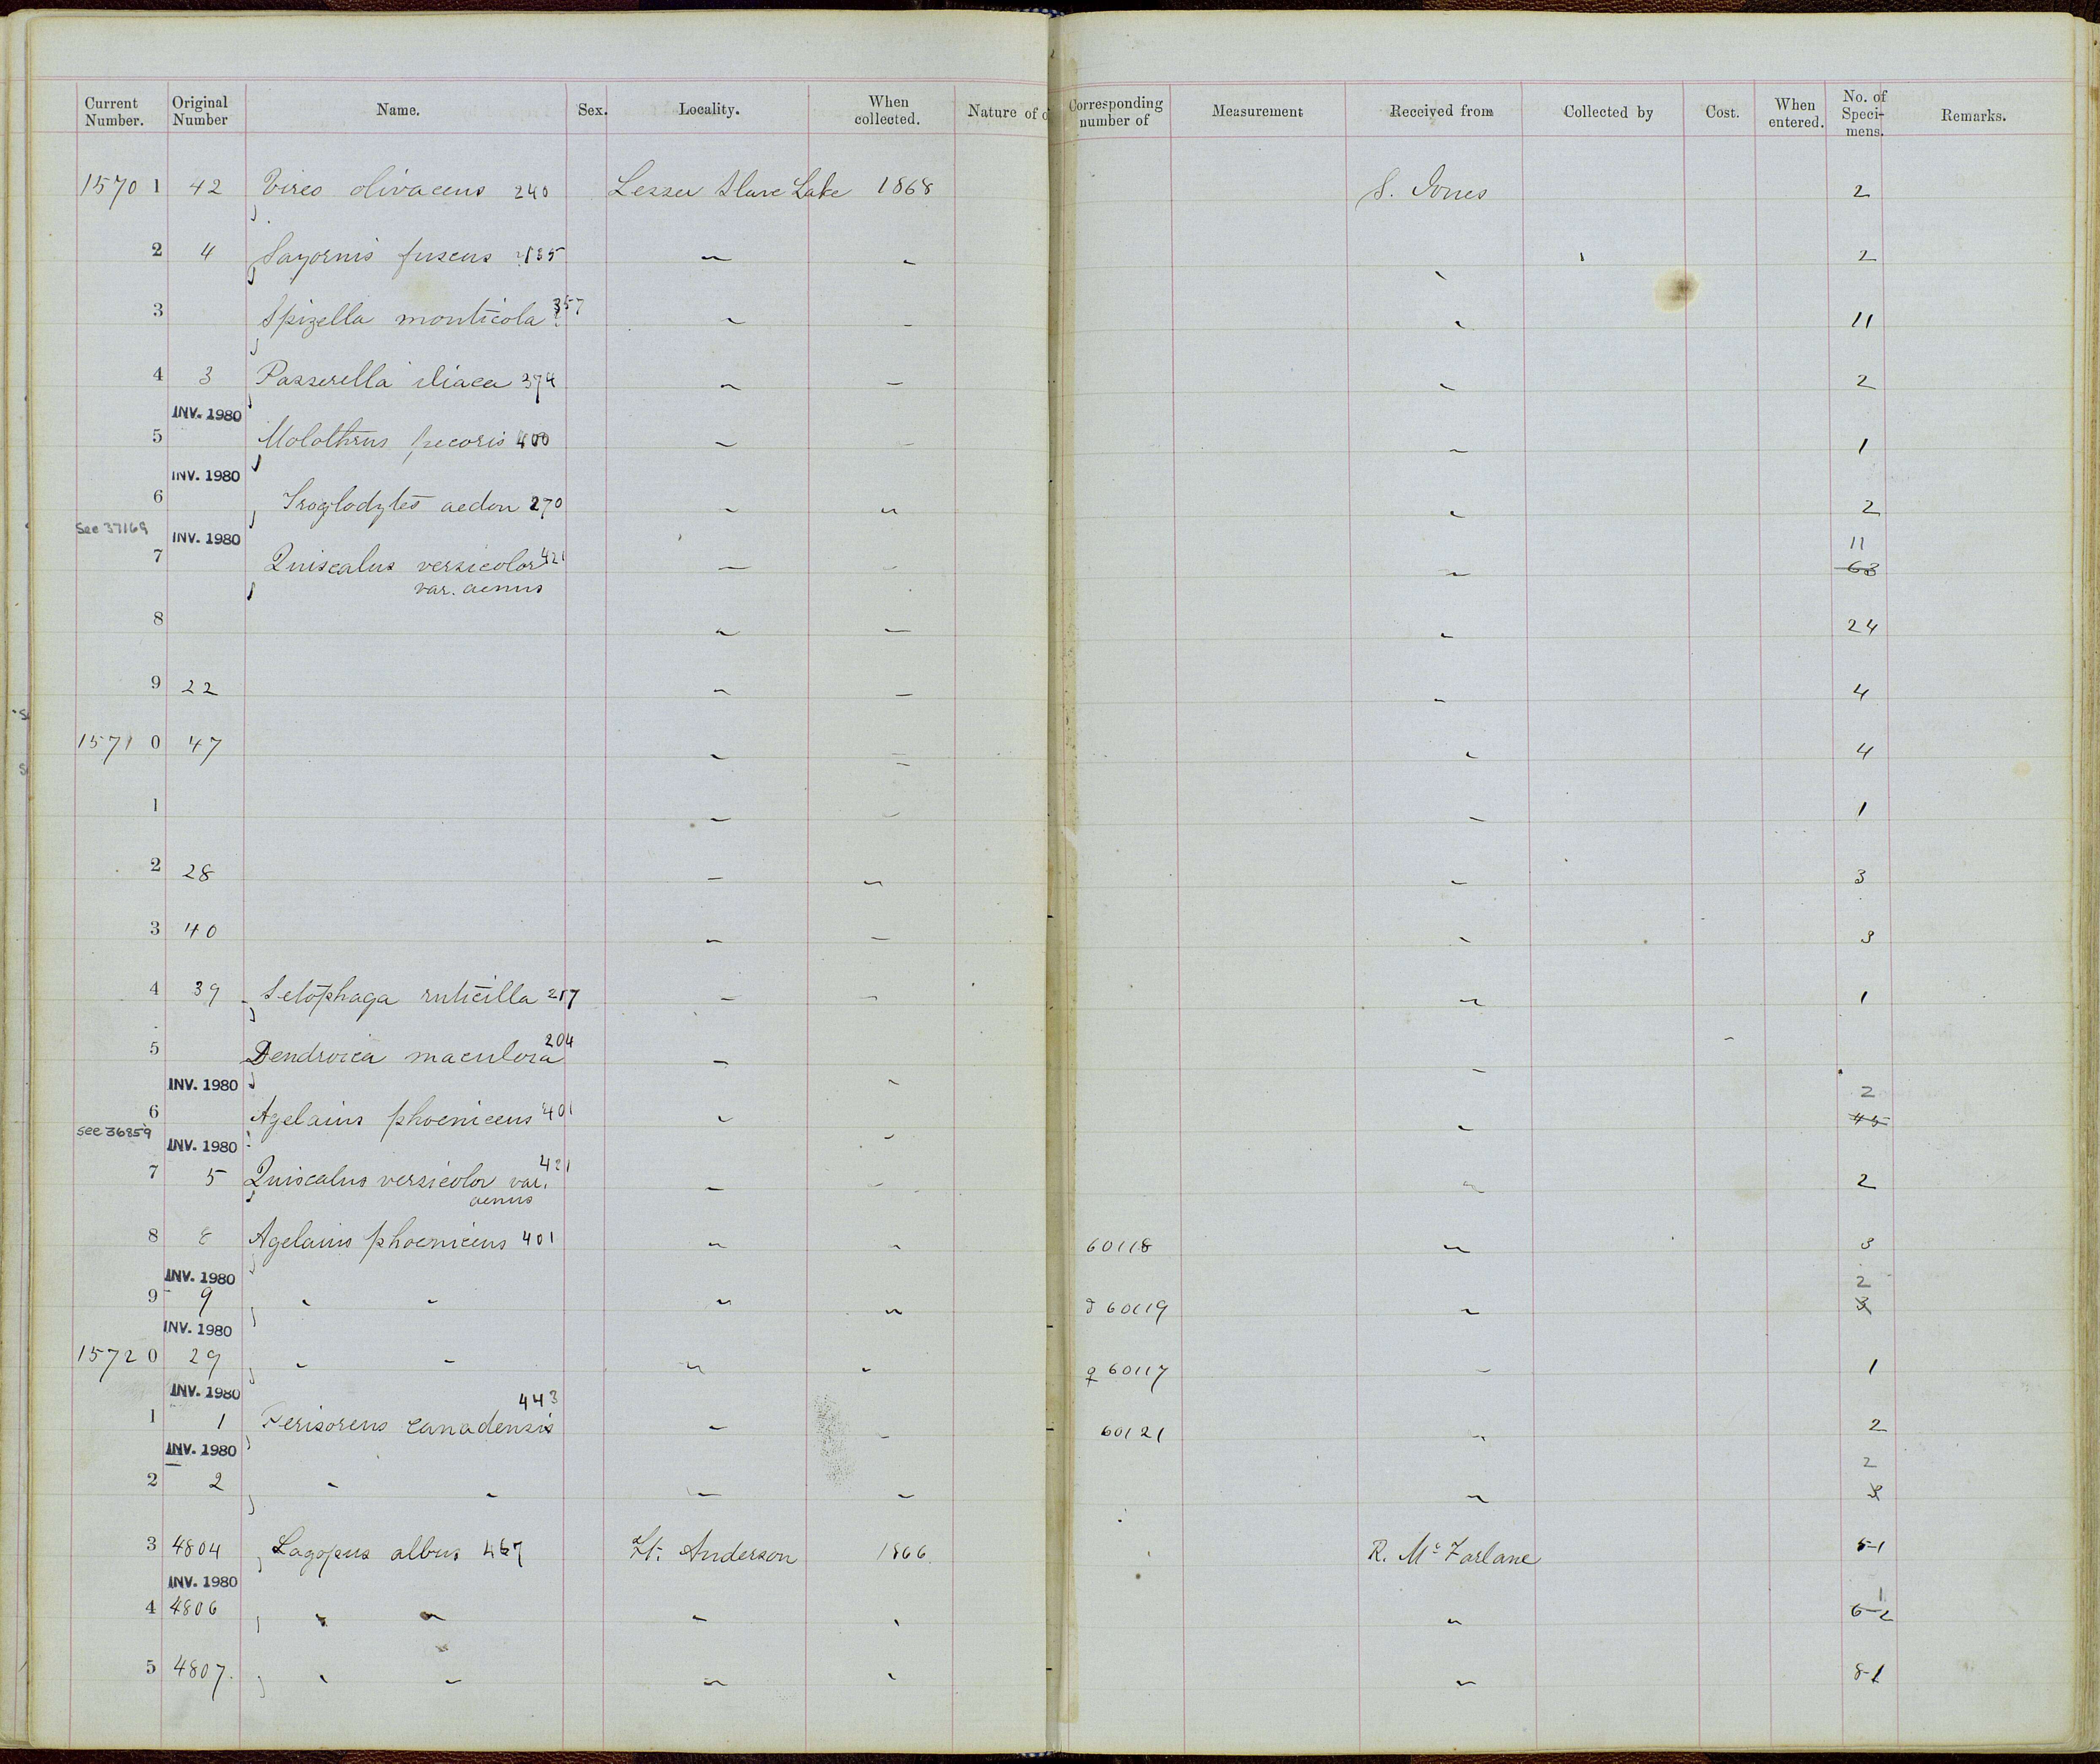 Current Number. Original Number Name. Sex. Locality. When collected. Nature of Corresponding number of Measurement Received from Collected by Cost. When entered. No. of Speci-mens. Remarks.
1570 1 42 Vireo olivaceus 240 Lesser Slave Lake 1868 S. Jones 2
2 4 Sayornis fuscus 135 " " " 2
3 Spizella monticola 357 " " " 11
4 3 Passerella iliaca 374 " " " 2
INV. 1980
5 Molothrus pecoris 400 " " " 1
INV. 1980
6 Troglodytes aedon 270 " " " 2
See 37169 INV. 1980
7 Quiscalus versicolor 421 " " " 11 63
var. aenus
8 " " " 24
9 22 " " " 4
1571 0 47 " " " 4
1 " " " 1
2 28 " " " 3
3 40 " " " 3
4 39 Setophaga ruticilla 217 " " " 1
5 Dendroica maculosa 204 " " "
INV. 1980
6 Agelaius phoeniceus 401 " " " 2 45
see 36859 INV. 1980
7 5 Quiscalus versicolor var. 421 " " " 2
aenus
8 8 Agelaius phoeniceus 401 " " 60118 " 3
INV. 1980
9 9 " " " " ♂ 60119 " 2 3
INV. 1980
1572 0 29 " " " " ♀ 60117 " 1
INV. 1980
1 1 Perisoreus canadensis 443 " " 60121 " 2
INV. 1980
2 2 " " " " " 2 3
3 4804 Lagopus albus 467 Ft. Anderson 1866. R. McFarlane 5-1
INV. 1980
4 4806 " " " " " 1 6-2
5 4807. " " " " " 8-1